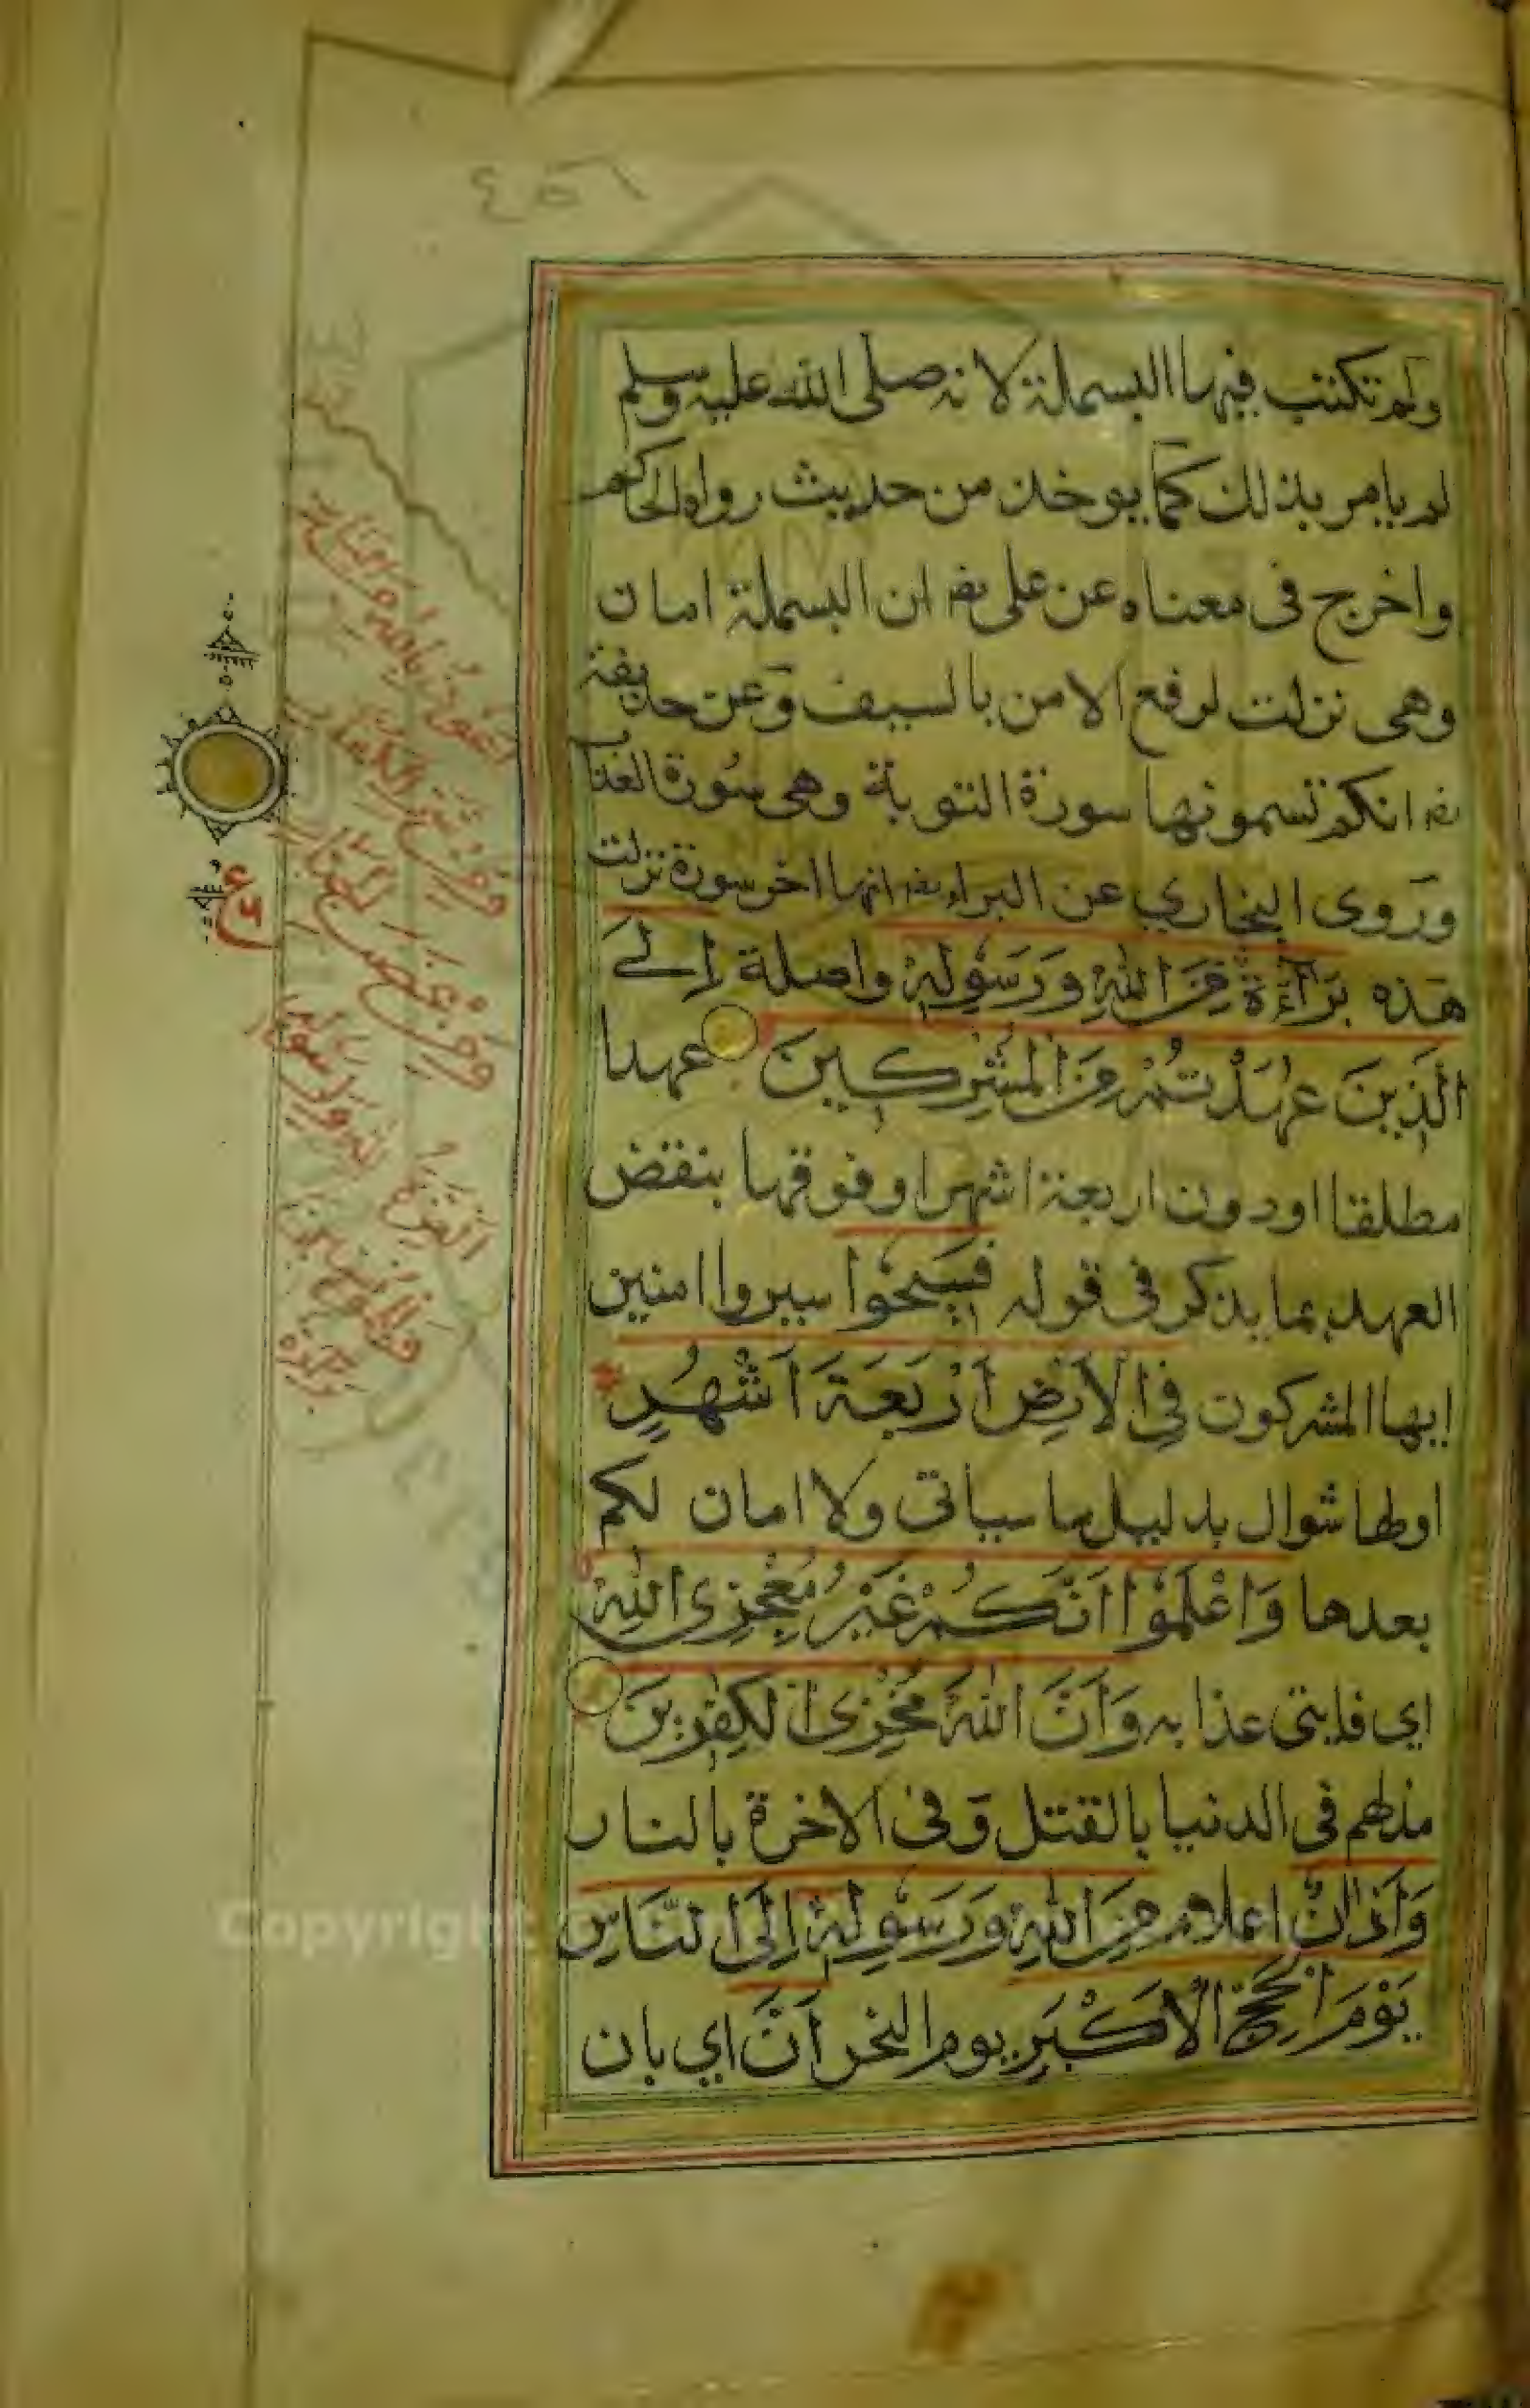 ٤٥٦
ولم تكتب فيها البسملة لانه صلى الله عليه وسلم
لم يامر بذلك كما يوخذ من حديث رواه الحاكم
واخرج فى معناه عن على رضه ان البسملة امان
وهى نزلت لرفع الامن بالسيف وعن حذيفة
رضه انكم تسمونها سورة التوبة وهى سورة العذاب
وروى البخاري عن البراء رضه انها اخر سورة نزلت
هذه بَرَآءَةٌ مِّنَ اللهِ وَرَسُولِهٖ واصلة اِلَى
الَّذِينَ عٰهَدْتُمْ مِّنَ الْمُشْرِكِينَ عهدا
مطلقا او دون اربعة اشهر او فوقها بنقض
العهد بما يذكر فى قوله فَسِيحُوْا سيروا امنين
ايها المشركون فِى الْاَرْضِ اَرْبَعَةَ اَشْهُرٍ
اولها شوال بدليل ما سياتى ولا امان لكم
بعدها وَاعْلَمُوْا اَنَّكُمْ غَيْرُ مُعْجِزِى اللهِ
اي فايتى عذابه وَاَنَّ اللهَ مُخْزِى الْكٰفِرِينَ
مذلهم فى الدنيا بالقتل وَفى الاخرة بالنار
وَاَذَانٌ اعلام مِّنَ اللهِ وَرَسُولِهٖ اِلَى النَّاسِ
يَوْمَ الْحَجِّ الْاَكْبَرِ يوم النحر اَنَّ اي بان
اعوذ بالله من النار
ومن شر الكفار
ومن غضب الجبار
العزة لله ولرسوله
وللمؤمنين
Copyright